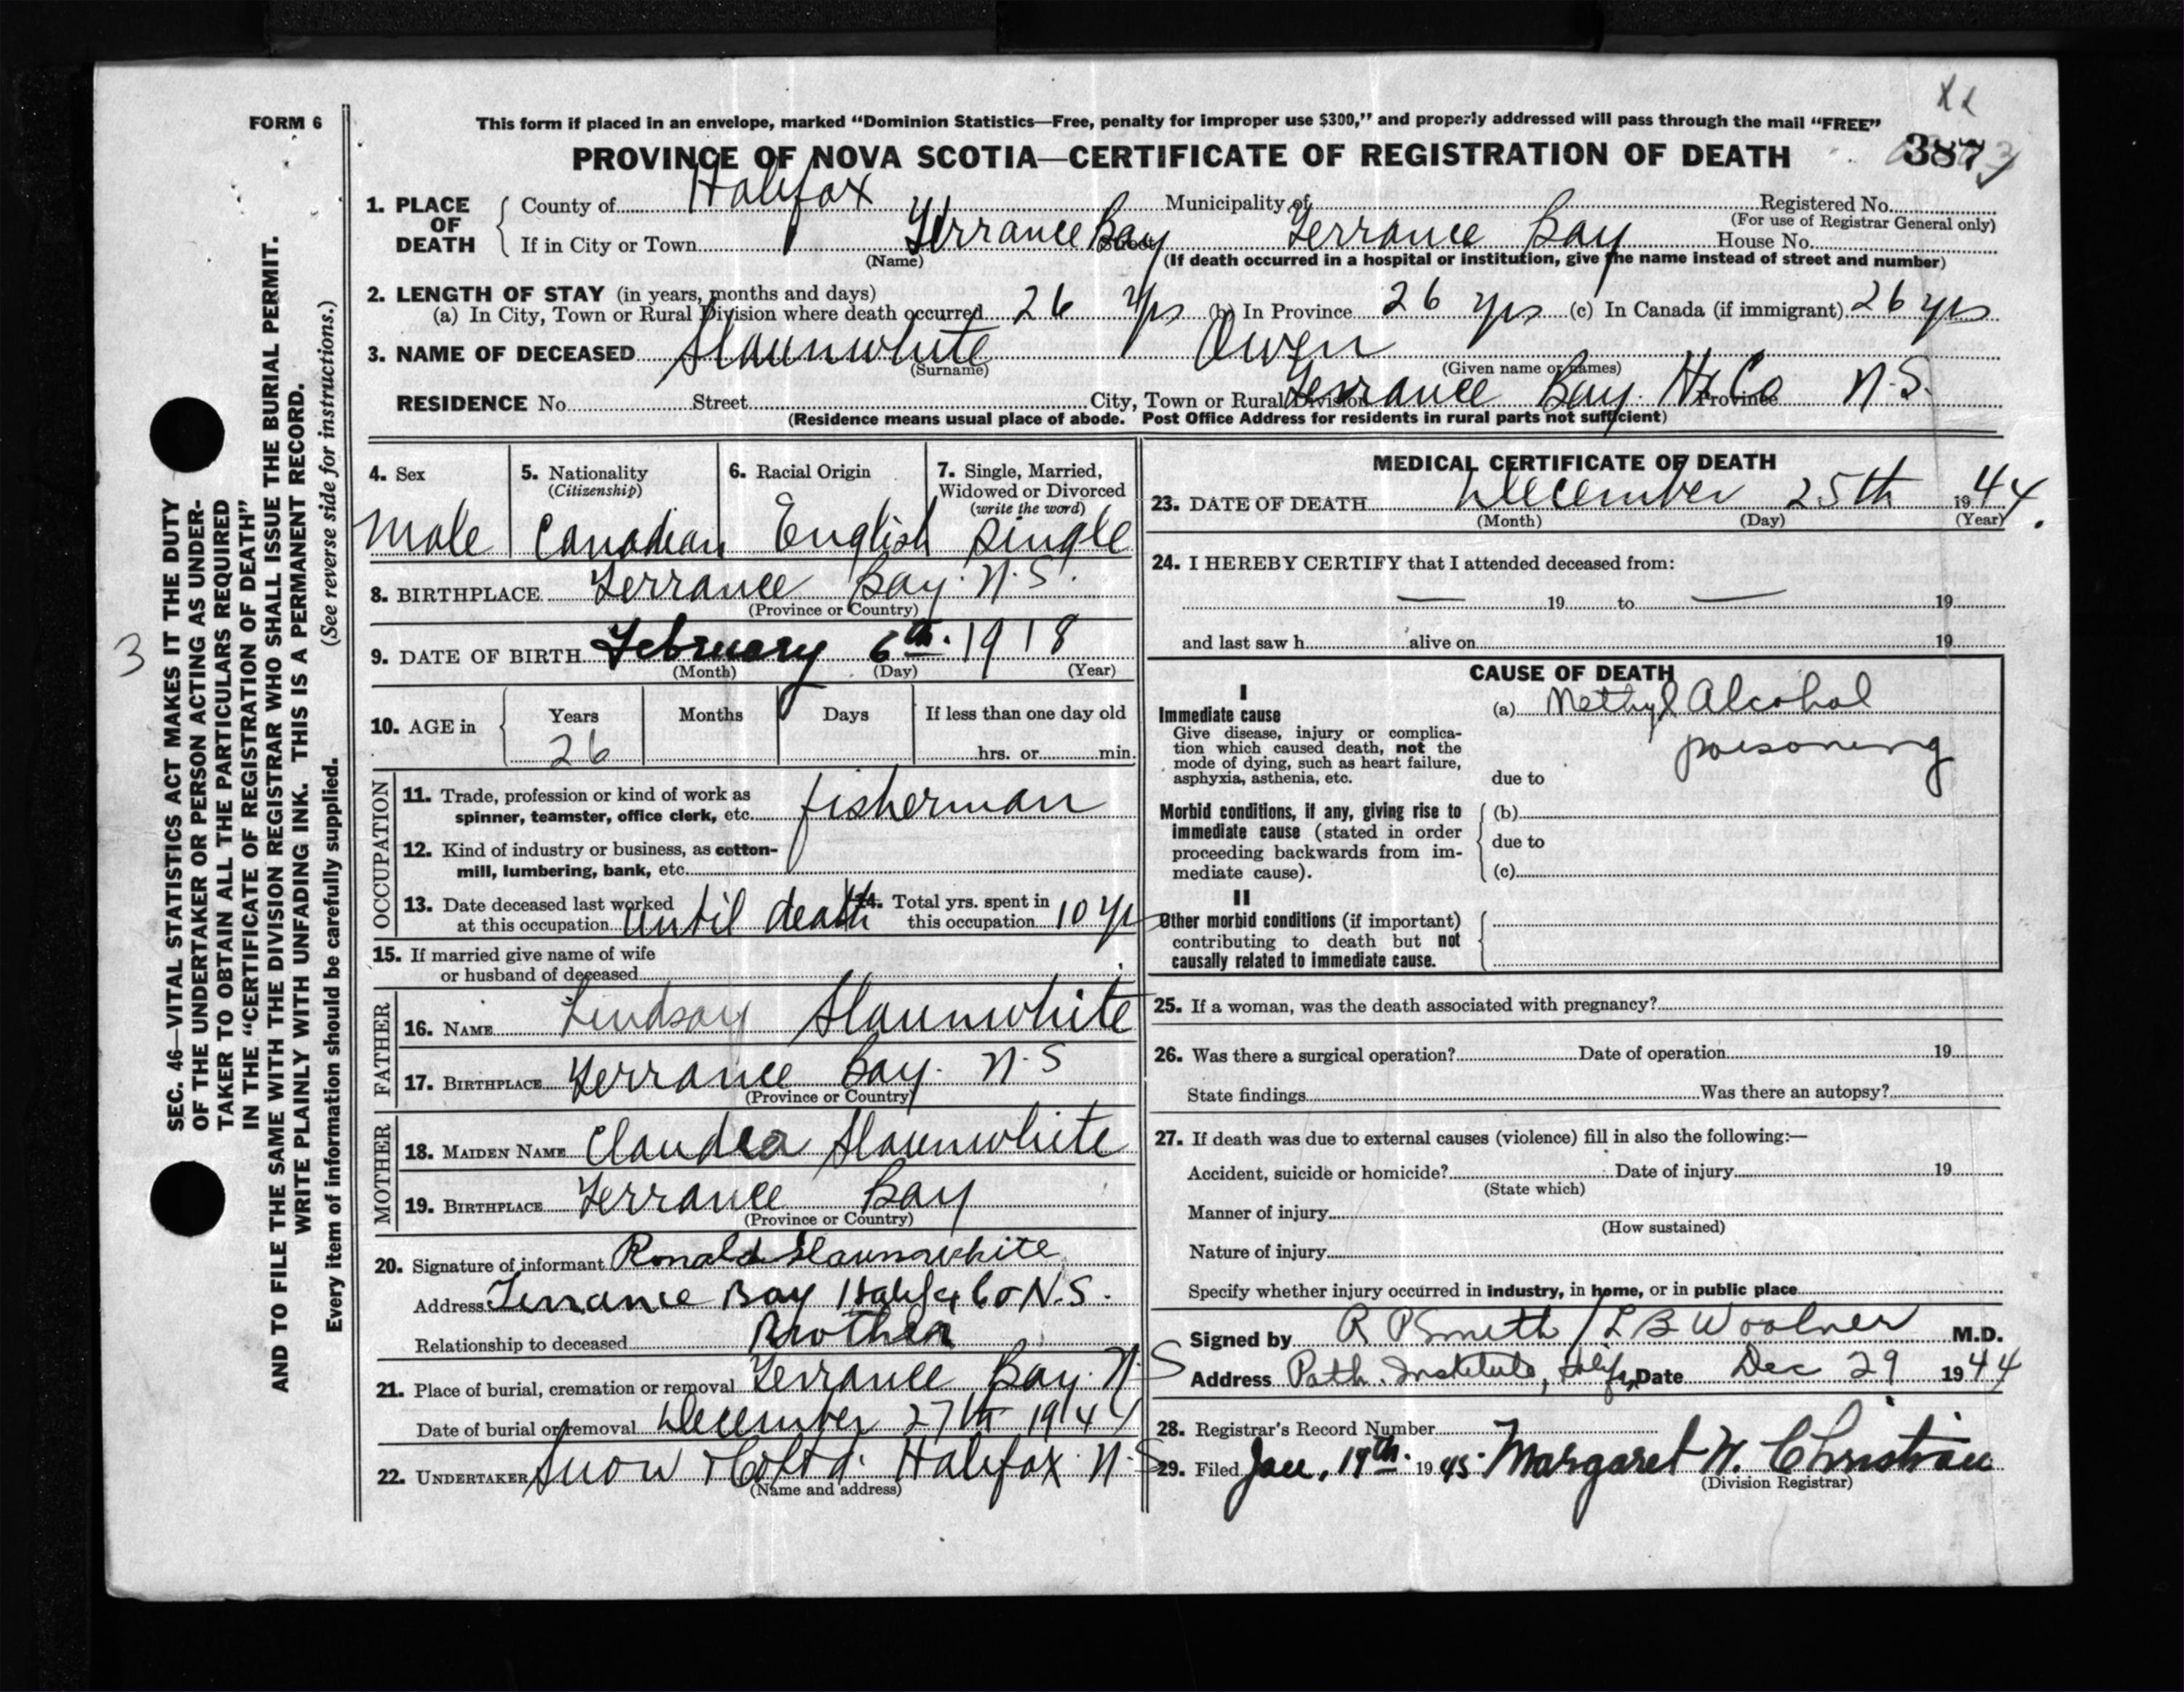 XX
FORM 6
This form if placed in an envelope, marked “Dominion Statistics—Free, penalty for improper use $300,” and properly addressed will pass through the mail “FREE”
PROVINCE OF NOVA SCOTIA—CERTIFICATE OF REGISTRATION OF DEATH 3873
1. PLACE OF DEATH
County of Halifax Municipality of Registered No.
(For use of Registrar General only)
If in City or Town Terrance Bay Street Terrance Bay House No.
(Name) (If death occurred in a hospital or institution, give the name instead of street and number)
2. LENGTH OF STAY (in years, months and days)
(a) In City, Town or Rural Division where death occurred 26 yrs (b) In Province 26 yrs (c) In Canada (if immigrant) 26 yrs
3. NAME OF DECEASED Slaunwhite Owen
(Surname) (Given name or names)
RESIDENCE No. Street City, Town or Rural Division Terrance Bay Hx Co Province N.S.
(Residence means usual place of abode. Post Office Address for residents in rural parts not sufficient)
4. Sex
Male
5. Nationality
(Citizenship)
Canadian
6. Racial Origin
English
7. Single, Married,
Widowed or Divorced
(write the word)
Single
8. BIRTHPLACE Terrance Bay. N.S.
(Province or Country)
9. DATE OF BIRTH February 6th. 1918
(Month) (Day) (Year)
10. AGE in
Years Months Days If less than one day old
26 hrs. or min.
OCCUPATION
11. Trade, profession or kind of work as
spinner, teamster, office clerk, etc. fisherman
12. Kind of industry or business, as cotton-
mill, lumbering, bank, etc.
13. Date deceased last worked 14. Total yrs. spent in
at this occupation until death this occupation 10 yrs
15. If married give name of wife
or husband of deceased
FATHER
16. NAME Lindsay Slaunwhite
17. BIRTHPLACE Terrance Bay. N.S
(Province or Country)
MOTHER
18. MAIDEN NAME Claudia Slaunwhite
19. BIRTHPLACE Terrance Bay
(Province or Country)
20. Signature of informant Ronald Slaunwhite
Address Terrance Bay Halifax Co N.S.
Relationship to deceased Brother
21. Place of burial, cremation or removal Terrance Bay. N.S
Date of burial or removal December 27th 1944
22. UNDERTAKER Snow & Co Ltd. Halifax. N.S
(Name and address)
MEDICAL CERTIFICATE OF DEATH
23. DATE OF DEATH December 25th 1944.
(Month) (Day) (Year)
24. I HEREBY CERTIFY that I attended deceased from:
— 19 to — 19
and last saw h alive on 19
CAUSE OF DEATH
I
Immediate cause
Give disease, injury or complica-
tion which caused death, not the
mode of dying, such as heart failure,
asphyxia, asthenia, etc.
(a) Methyl Alcohol
poisoning
due to
Morbid conditions, if any, giving rise to
immediate cause (stated in order
proceeding backwards from im-
mediate cause).
(b)
due to
(c)
II
Other morbid conditions (if important)
contributing to death but not
causally related to immediate cause.
25. If a woman, was the death associated with pregnancy?
26. Was there a surgical operation? Date of operation 19
State findings Was there an autopsy?
27. If death was due to external causes (violence) fill in also the following:—
Accident, suicide or homicide? Date of injury 19
(State which)
Manner of injury
(How sustained)
Nature of injury
Specify whether injury occurred in industry, in home, or in public place
Signed by R P Smith / L B Woolner M.D.
Address Path. Institute, Hlfx, Date Dec 29 1944
28. Registrar's Record Number
29. Filed Jan, 19th. 1945. Margaret W. Christian
(Division Registrar)
SEC. 46—VITAL STATISTICS ACT MAKES IT THE DUTY
OF THE UNDERTAKER OR PERSON ACTING AS UNDER-
TAKER TO OBTAIN ALL THE PARTICULARS REQUIRED
IN THE “CERTIFICATE OF REGISTRATION OF DEATH”
AND TO FILE THE SAME WITH THE DIVISION REGISTRAR WHO SHALL ISSUE THE BURIAL PERMIT.
WRITE PLAINLY WITH UNFADING INK. THIS IS A PERMANENT RECORD.
Every item of information should be carefully supplied. (See reverse side for instructions.)
3